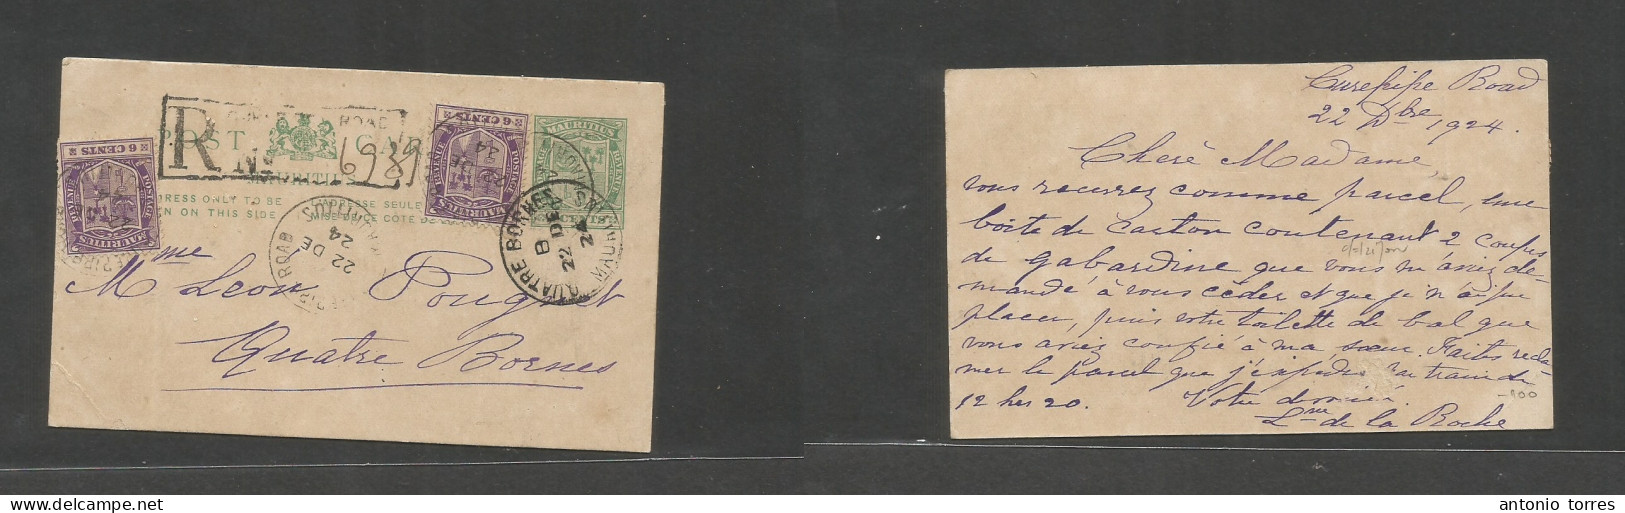 R
CUREPIPE ROAD
No. 689
POST CARD
MAURITIUS
ADDRESS ONLY TO BE
WRITTEN ON THIS SIDE
L'ADRESSE SEULE
MISE DE CE CÔTÉ DE LA
6 CENTS
REVENUE
POSTAGE
MAURITIUS
6 CENTS
REVENUE
POSTAGE
MAURITIUS
MAURITIUS
CENTS
ROAD
22 DE
24
MAURITIUS
QUATRE BORNES
B
22 DE
24
MAURITIUS
Mme Leon Pougnet
Quatre Bornes
Curepipe Road
22 Dbre 1924.
Cheré Madame,
vous recevrez comme parcel, une
boite de carton contenant 2 coupes
de gabardine que vous m'aviez de-
mandé à vous céder et que je n'ai pu
placer, puis votre toilette de bal que
vous aviez confié à ma sœur. Faites recla-
mer le parcel que j'expédie au train de
12 hrs 20. Votre
de la Roche
-900
antonio torres